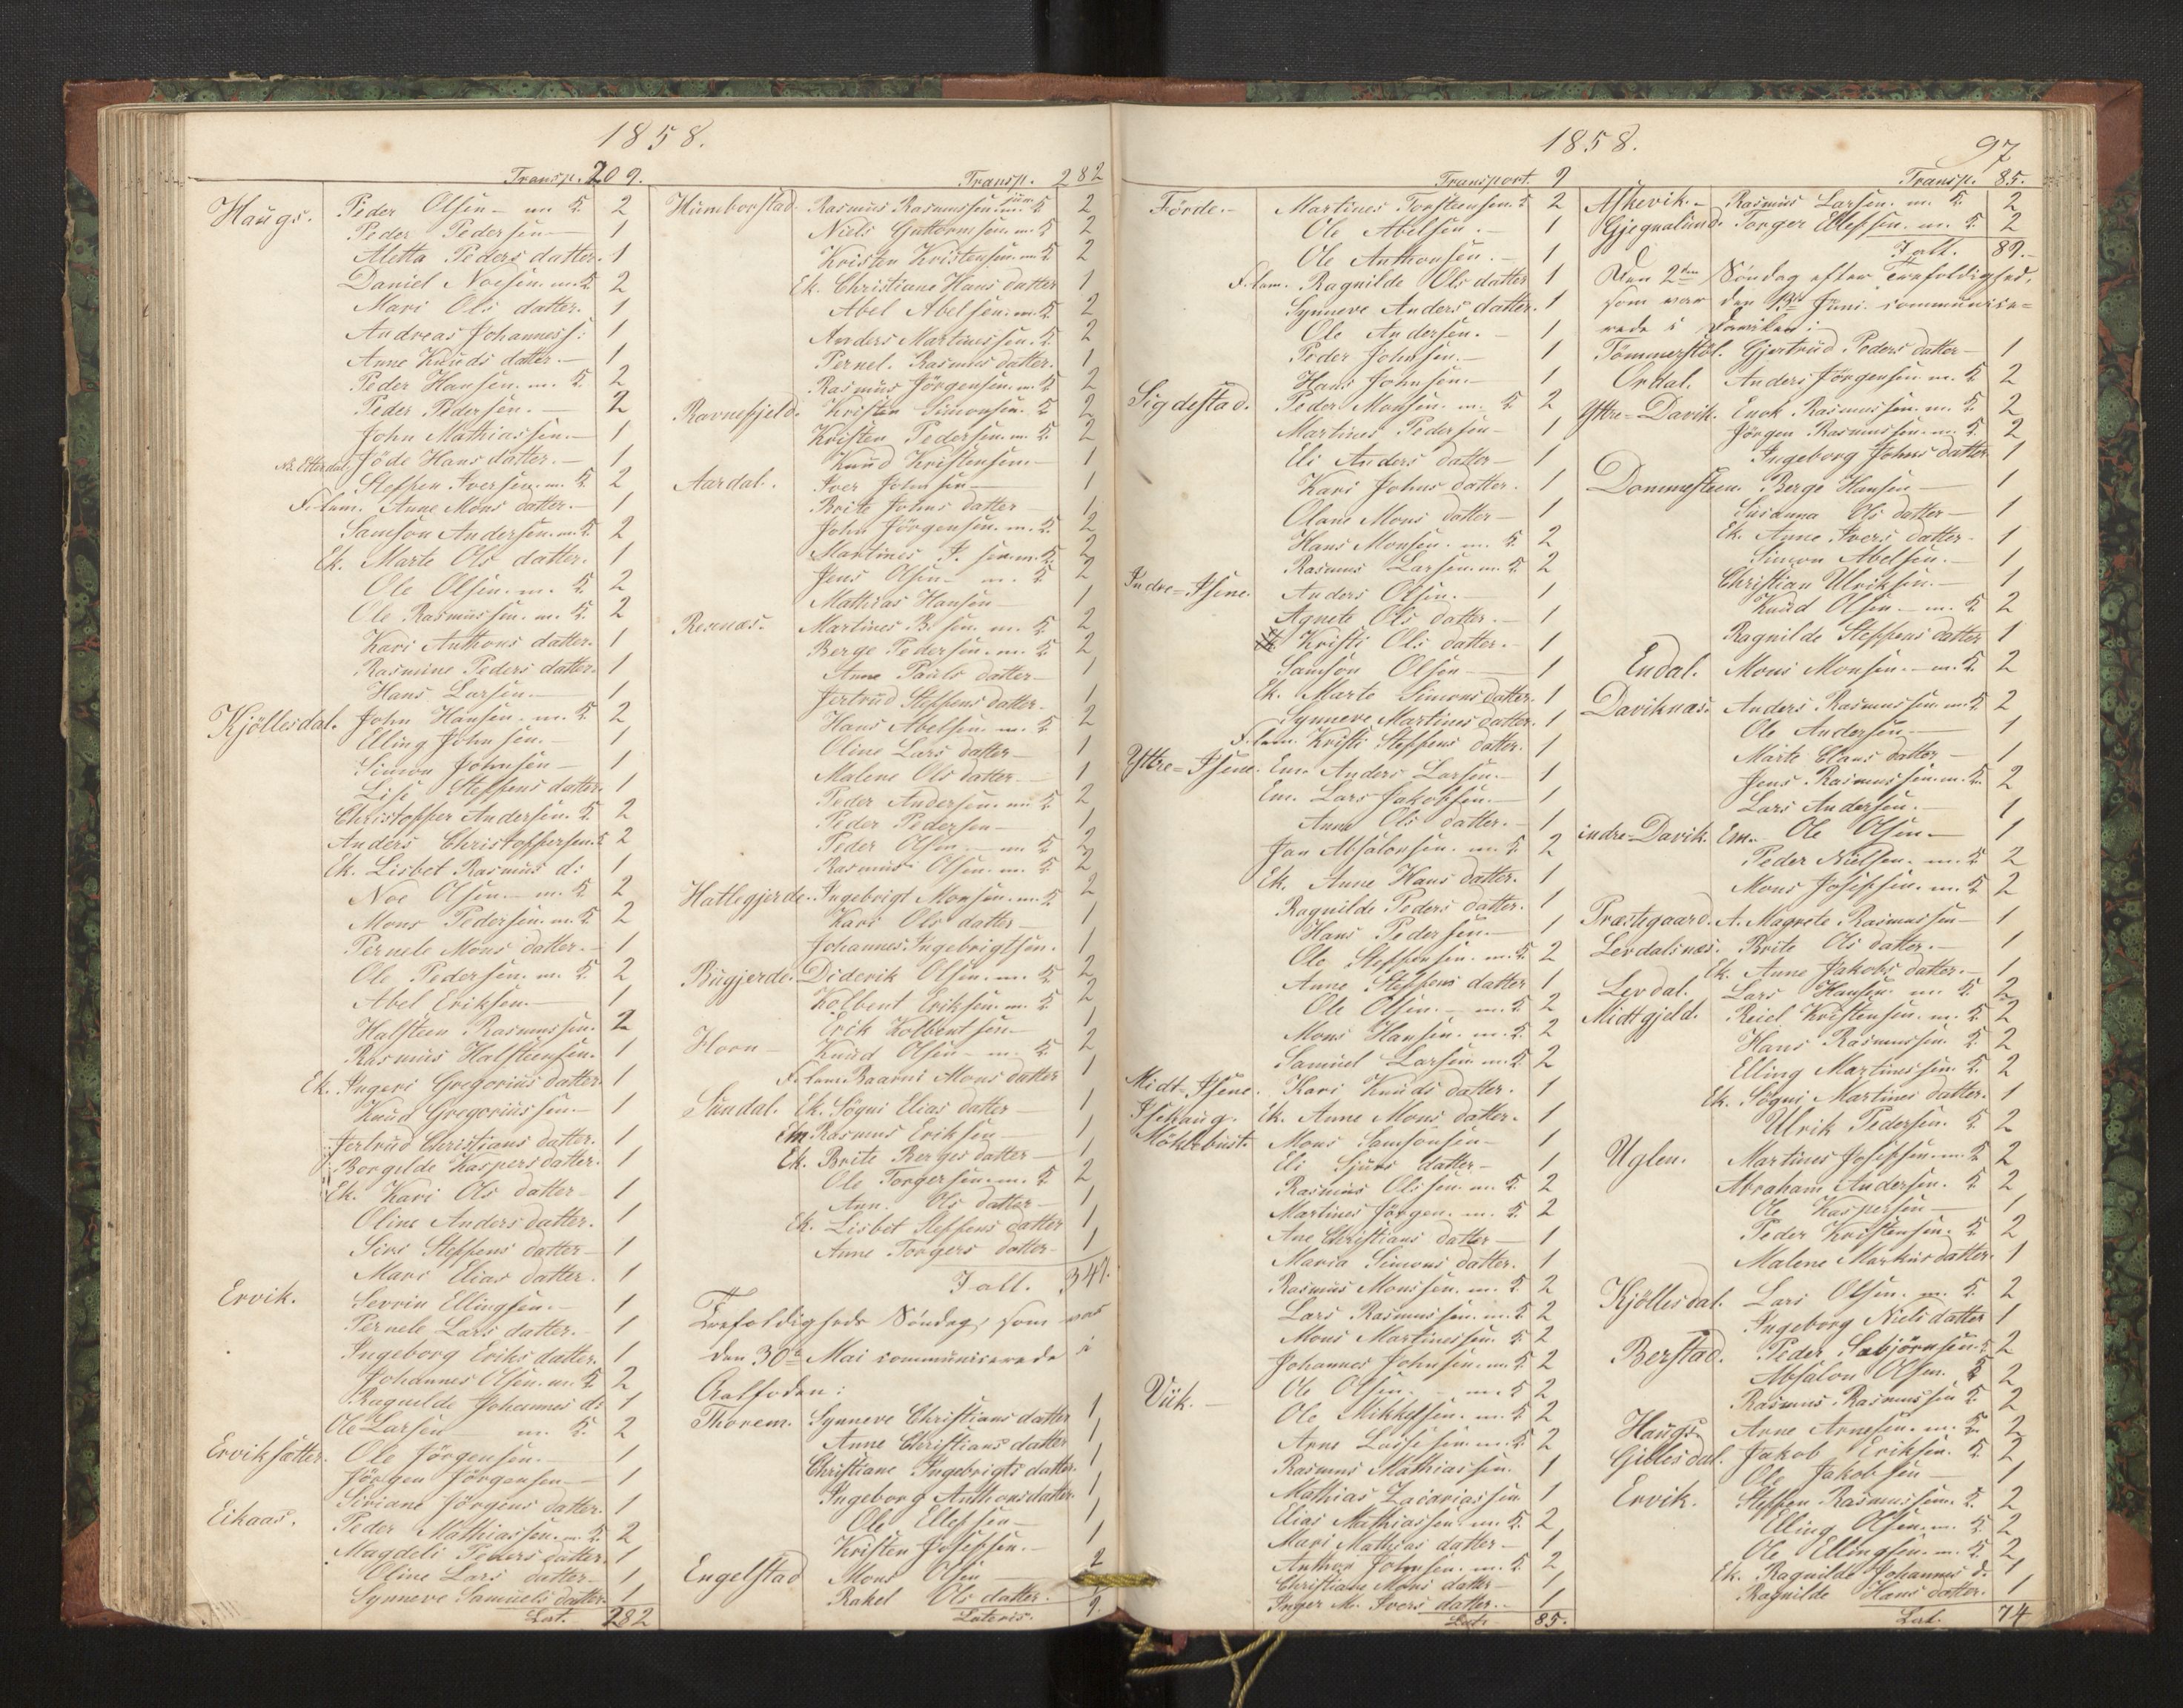 1858.
Transp. 209.
Haugs. Peder Olsen - m. K. 2
Peder Pedersen - 1
Aletta Peders datter. 1
Daniel Noesen. m. K. 2
Mari Ols datter. 1
Andreas Johanness: 1
Anne Knuds datter. - 1
Peder Hansen. m. K. 2
Peder Pedersen. - 2
John Mathiassen. - 1
Jöde Hans datter. - 1
Steffen Iversen. m. K. 2
F. lem. Anne Mons datter. - 1
Samson Andersen. m. K. 2
Ek. Marte Ols datter. 1
Ole Olsen. m. K. 2
Ole Rasmussen. m. K. 2
Kari Anthons datter. 1
Rasmine Peders datter. 1
Hans Larsen. - 1
Kjöllesdal. John Hansen. m. K. 2
Elling Johnsen. - 1
Simon Johnsen - 1
Lise Steffens datter. 1
Christoffer Andersen. K. 2
Anders Christoffersen. K 2
Ek. Lisbet Rasmus d: 1
Noe Olsen. m. K. 2
Mons Pedersen. m. K. 2
Pernele Mons datter. - 1
Ole Pedersen. m. K. 2
Abel Eriksen. - 1
Halsteen Rasmussen. 2
Rasmus Halsteensen. 1
Ek. Ingeri Gregorius datter 1
Knud Gregoriussen. - 1
Jertrud Christians datter. 1
Borgilde Kaspers datter. 1
Ek. Kari Ols datter - 1
Oline Anders datter. 1
Siri Steffens datter - 1
Mari Elias datter. 1
Ervik. Severin Ellingsen. - 1
Pernele Lars datter. - 1
Ingeborg Eriks datter. 1
Johannes Olsen. m. K. 2
Ragnilde Johannes d: 1
Ole Larsen m. K. 2
Erviksætter. Ole Jörgensen. - 1
Jörgen Jörgensen - 1
Siriane Jörgens datter. 1
Eikaas. Peder Mathiassen. m. K. 2
Magdeli Peders datter. 1
Oline Lars datter - 1
Synneve Samuels datter. 1
Lat. 282
Transp. 282
Humborstad. Rasmus Rasmussen jun. m. K 2
Niels Guttormsen. m. K 2
Kristen Kristensen. m. K 2
Ek. Christiane Hans datter 1
Abel Abelsen. m. K. 2
Anders Martinessen. K. 2
Pernel. Rasmus datter. 1
Rasmus Jörgensen. m. K 2
Ravnefjeld. Kristen Simonsen. K 2
Kristen Pedersen. m. K. 2
Knud Kristensen. - 1
Aardal. Iver Johnsen - 1
Brite Johns datter 1
John Jörgensen. m. K. 2
Martines P. sen. m. K. 2
Jens Olsen - m. K 2
Mathias Hansen - 1
Rennes. Martines B. sen. m. K. 2
Berge Pedersen. m. K. 2
Anne Pauls datter - 1
Jertrud Steffens datter - 1
Hans Abelsen. m. K 2
Oline Lars datter - 1
Malene Ols datter. - 1
Peder Andersen. m. K 2
Peder Pedersen - 1
Peder Olsen. - m. K 2
Rasmus Olsen. m. K. 2
Hatlegjerde. Ingebrigt Monsen. m. K. 2
Kari Ols datter - 1
Johannes Ingebrigtsen. 1
Bugjerde. Diderik Olsen. m. K. 2
Kolbent Eriksen. m. K. 2
Erik Kolbentsen. - 1
Horn - Knud Olsen - m. K. 2
F. lem. Baarni Mons datter 1
Sundal. Ek. Sögni Elias datter - 1
Em Rasmus Eriksen - 1
Ek. Brite Berges datter - 1
Ole Torgersen. m. K 2
Ann. Ols datter - 1
Ek. Lisbet Steffens datter 1
Anne Torgers datter - 1
I alt. 347.
Trefoldigheds Söndag, som var
den 30te Mai communicerede i
Aalfoden:
Thorem. Synneve Christians datter 1
Anne Christians datter 1
Christiane Ingebrigts datter. 1
Ingeborg Anthons datter. 1
Ole Ellefsen - 1
Kristen Josefsen. - 1
Engelstad Mons Olsen - 2
Rakel Ols datter. 1
Lateris. 9.
1858. 97
Transport. 9
Förde. - Martines Torsteensen. K 2
Ole Abelsen. - 1
Ole Anthonsen. - 1
F. lem. Ragnilde Ols datter 1
Synneve Anders datter. 1
Ole Andersen. - 1
Peder Johnsen. - 1
Hans Johnsen. - 1
Sigdestad. Peder Monsen. m. K 2
Martines Pedersen - 1
Eli Anders datter - 1
Kari Johns datter. 1
Olane Mons datter - 1
Hans Monsen. m. K. 2
Rasmus Larsen. m. K. 2
Indre-Isene. Anders Olsen. - 1
Agnete Ols datter. - 1
Kristi Ols datter. - 1
Samson Olsen - 1
Ek. Marte Simons datter. 1
Synneve Martines datter. 1
F. lem. Kristi Steffens datter. 1
Yttre-Isene. Em. Anders Larsen. - 1
Em. Lars Jakobsen. - 1
Anna Ols datter. - 1
Jan Absalonsen. m. K. 2
Ek. Anne Hans datter. 1
Ragnilde Peders datter. 1
Hans Pedersen. - 1
Ole Steffensen. m. K 2
Anne Steffens datter 1
Ole Olsen. - m. K 2
Mons Hansen. m. K. 2
Samuel Larsen. m. K 2
Midt-Isene. Kari Knuds datter. 1
Isehaug. Ek. Anne Mons datter. 1
Möklebust. Mons Samsonsen - 1
Eli Sjurs datter - 1
Rasmus Olsen. m. K. 2
Martines Jörgen. m. K. 2
Ane Christians datter - 1
Maria Simons datter. 1
Rasmus Monssen. m. K. 2
Lars Rasmussen. m. K 2
Mons Martinessen. K 2
Johannes Johnsen. m. K 2
Viik. - Ole Olsen. - m. K 2
Ole Mikkelsen. m. K 2
Arne Lassesen. m. K 2
Rasmus Mathiassen. 1
Mathias Zacariassen. 1
Elias Mathiassen. m. K. 2
Mari Mathias datter - 1
Anthon Johnsen. m. K. 2
Christiane Mons datter - 1
Inger M. Ivers datter. - 1
Lat. 85.
Transp. 85.
Askevik. - Rasmus Larsen. m. K. 2
Gjegnalund. Torger Ellefsen. m. K. 2
I alt. 89. -
Den 2den Söndag efter Trefoldighed,
som var den 13de Juni communice-
rede i Daviken:
Tömmerstöl. Gjertrud Peders datter - 1
Ordal. Anders Jörgensen m. K. 2
Yttre-Davik. Enok Rasmussen. m. K. 2
Jörgen Rasmussen. m. K. 2
Ingeborg Johns datter 1
Dommesteen. Berge Hansen - 1
Susanna Ols datter - 1
Ek. Anne Ivers datter - 1
Simon Abelsen. - 1
Christian Ulriksen. - 1
Knud Olsen - m. K 2
Ragnilde Steffens datter 1
Endal. Mons Monsen. - m. K. 2
Daviknæs. Anders Rasmussen. m. K 2
Ole Andersen. - 1
Marte Claus datter - 1
Jens Rasmussen. m. K. 2
Lars Andersen. - 1
indre-Davik. Em. Ole Olsen. - 1
Peder Nielsen. m. K 2
Mons Josefsen. m. K 2
Præstegaard. A. Magrete Rasmussen - 1
Levdalsnæs. Brite Ols datter. - 1
Ek. Anne Jakobs datter. - 1
Levdal. Lars Hansen. m. K. 2
Midtgjeld. Reiel Kristensen. m. K 2
Hans Rasmussen. K 2
Elling Martinessen. K. 2
Ek. Sögni Martines datter. 1
Ulrik Pedersen. K 2
Uglen. Martines Josefsen. m. K 2
Abraham Andersen. K 2
Ole Kaspersen - 1
Peder Kristensen. K 2
Malene Markus datter. 1
Kjöllesdal. Lars Olsen. m. K. 2
Ingeborg Niels datter 1
Berstad. Peder Sæbjörnsen. K 2
Absalon Olsen. K 2
Rasmus Rasmussen K. 2
Haugs. Arne Arnesen. m. K. 2
Gillesdal. Jakob Eriksen. K. 2
Ole Jakobsen - 1
Ervik. Steffen Rasmussen. K. 2
Elling Olsen. m. K. 2
Ole Ellingsen. m. K. 2
Ek. Ragnilde Johannes d. 1
Ragnilde Hans datter. 1
Lat. 74